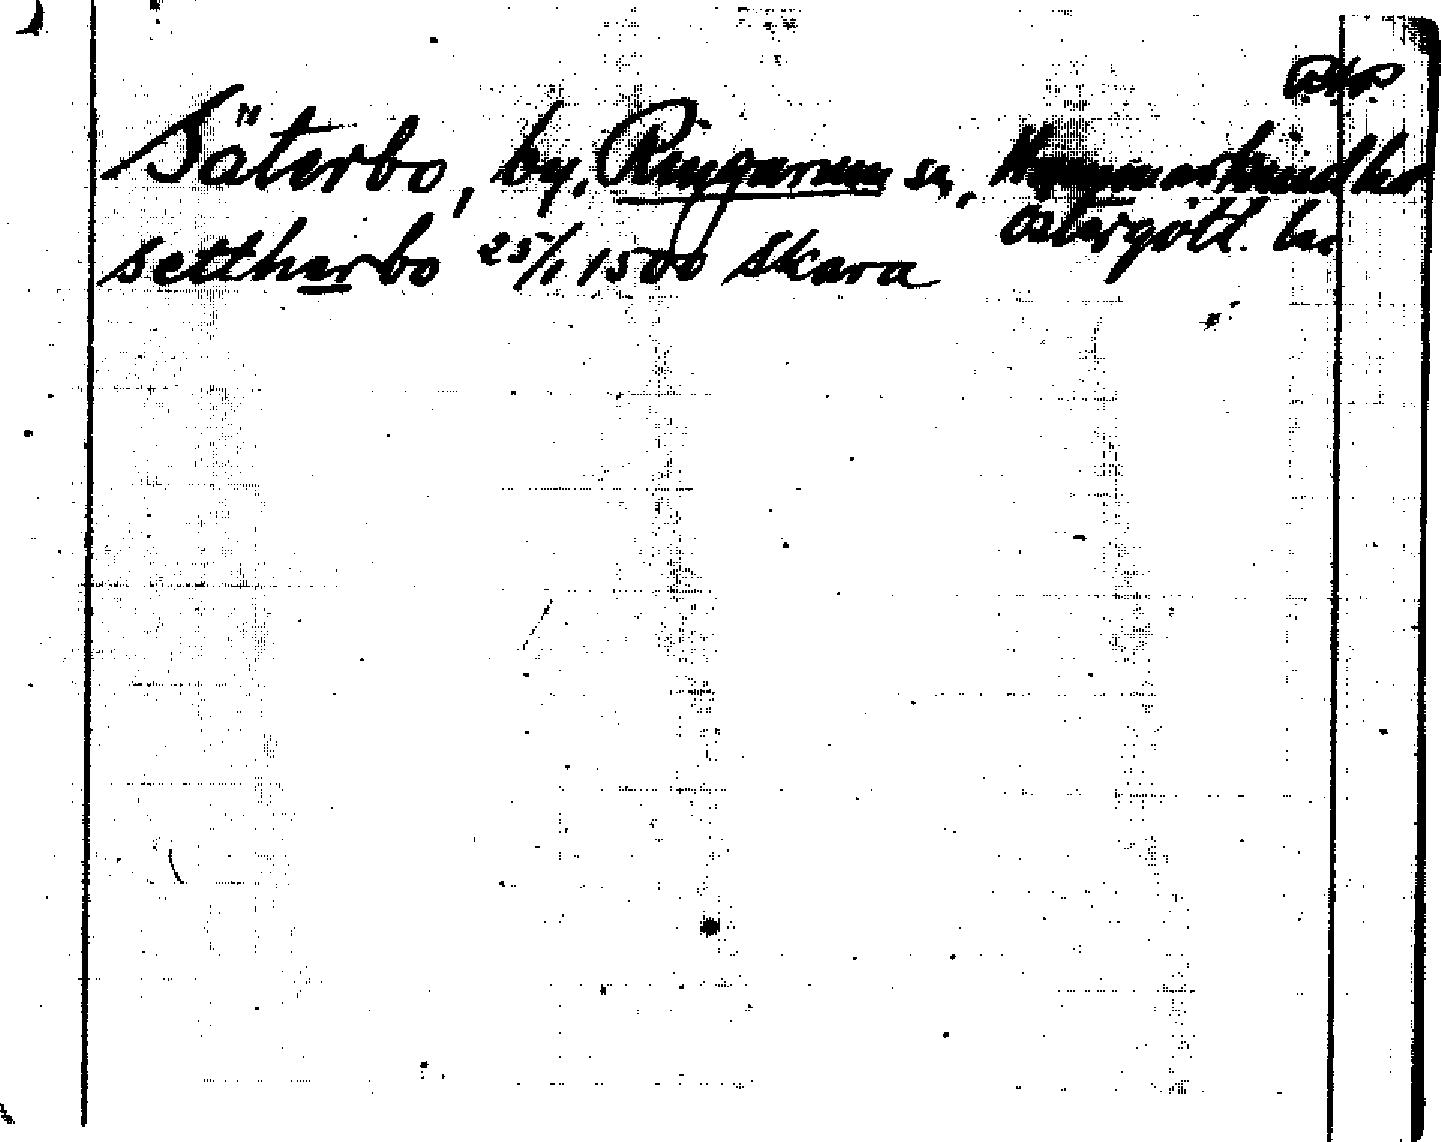 Säterbo, by, Ringarum sn, Hammarkind hd
Östergötl. län
settharbo 25/1 1500 Skara